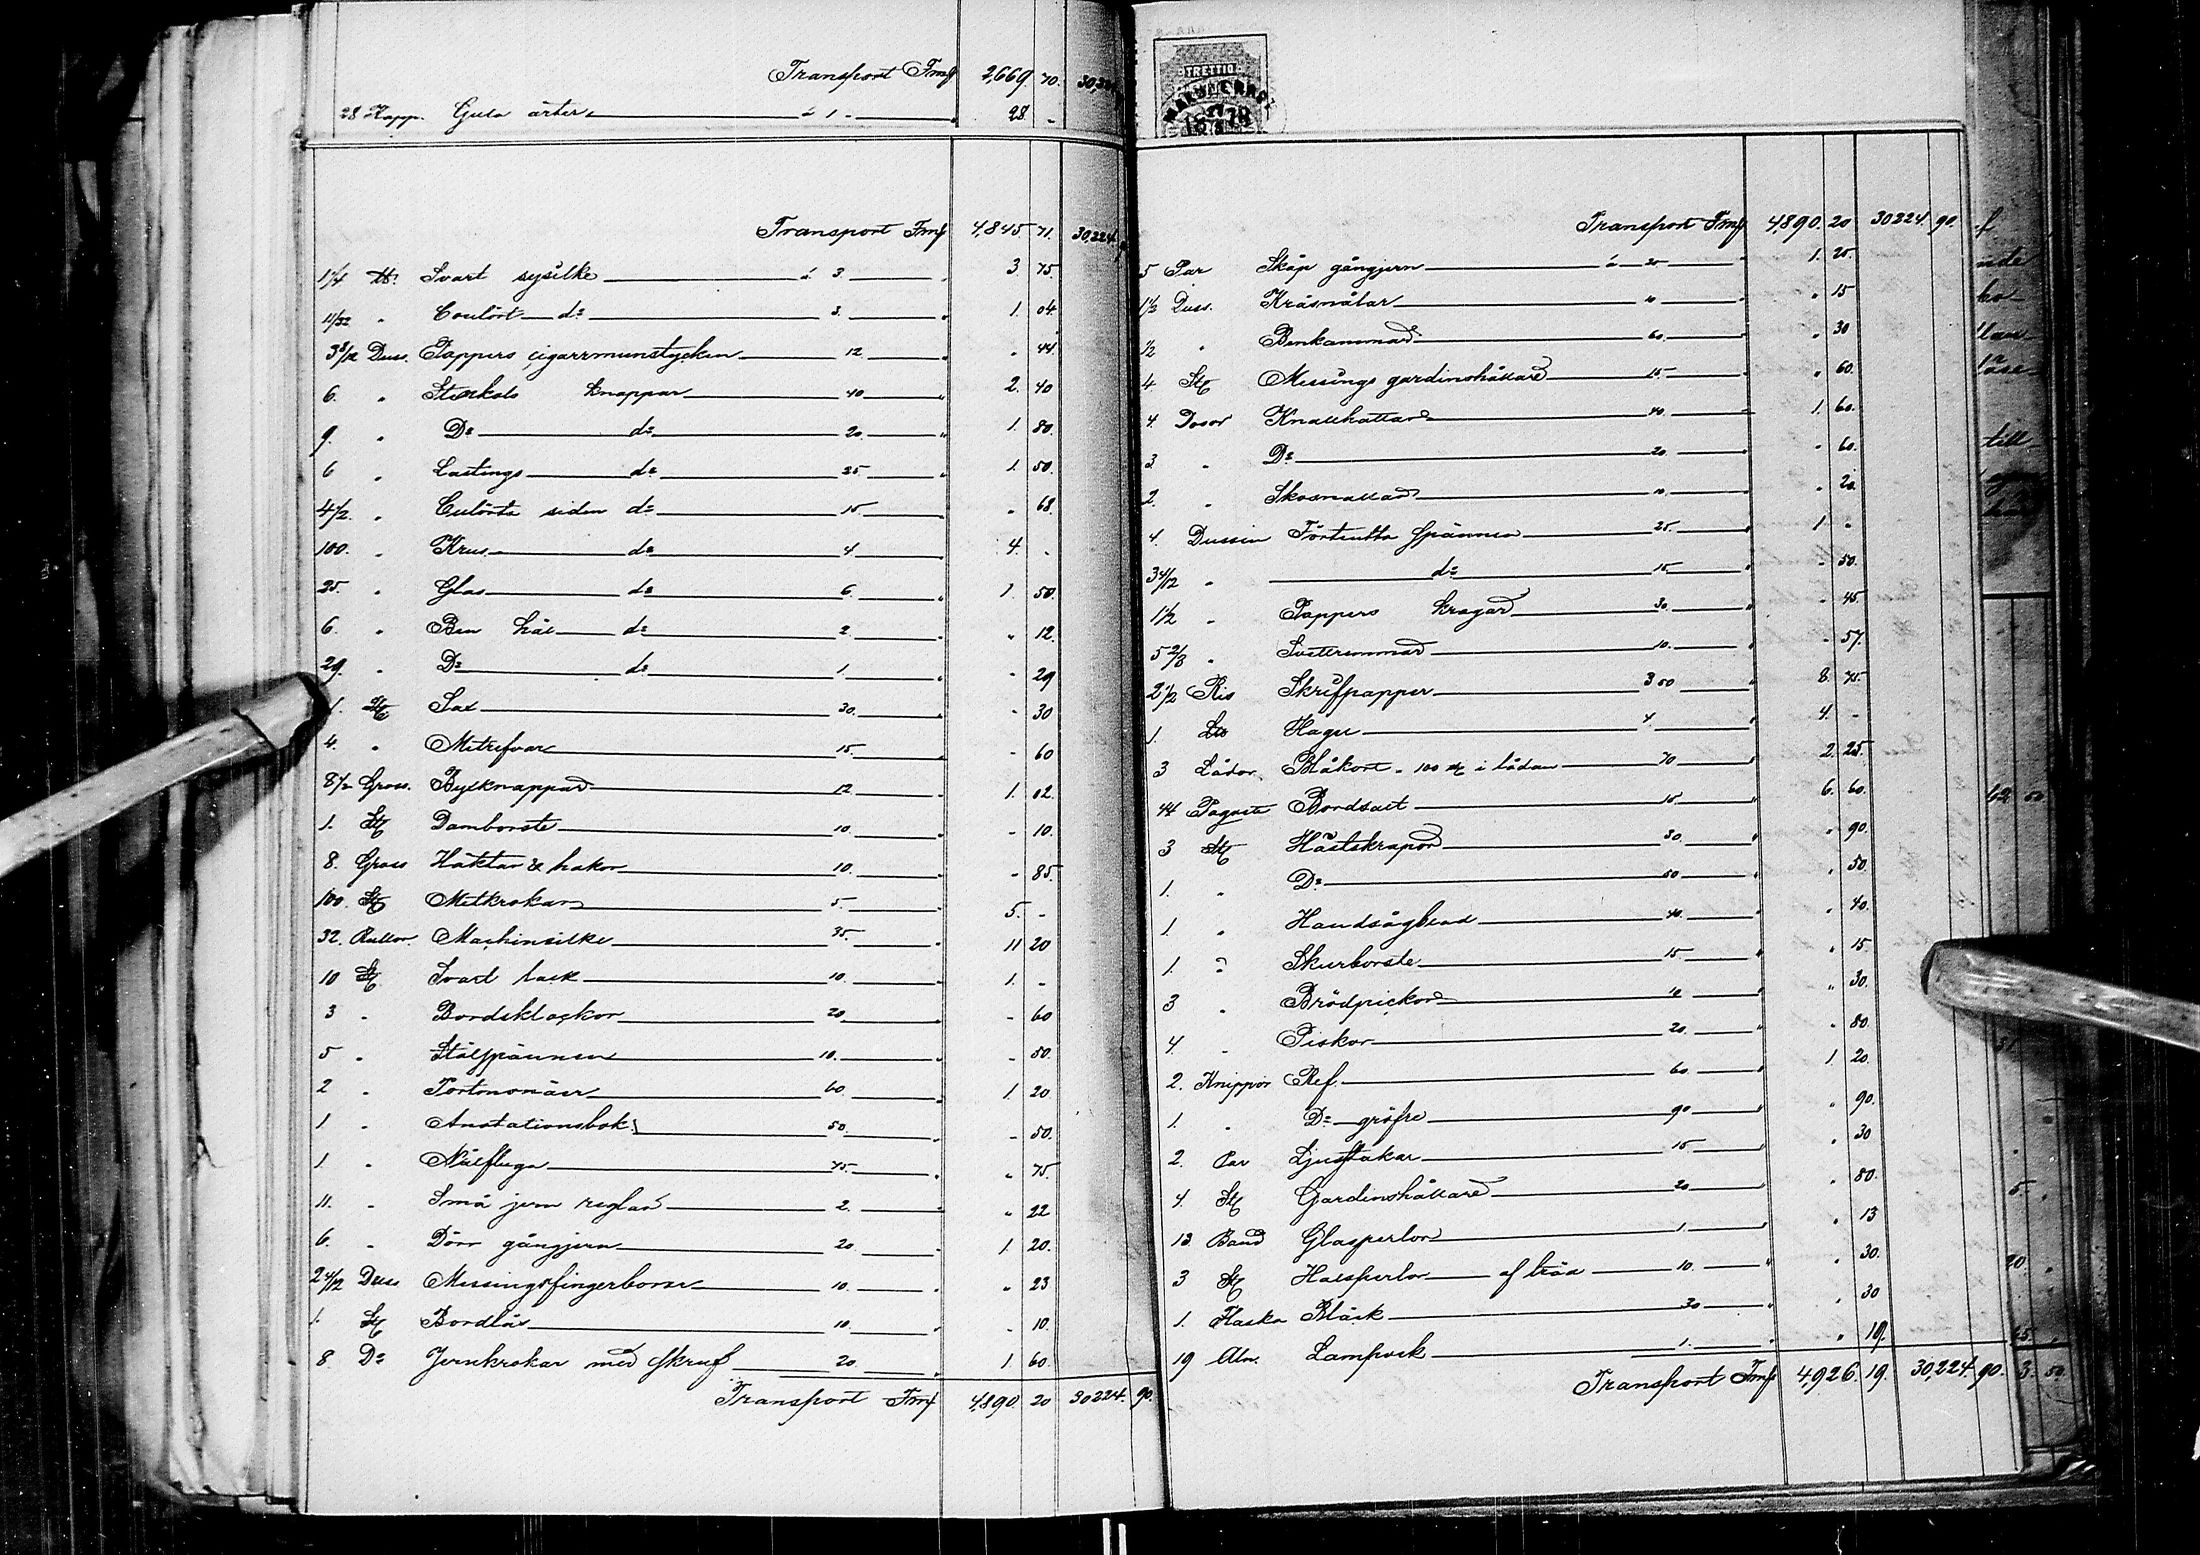 Transport Fmf 2,669. 70. 30,
28 Kapp. Gula ärter á 1 - 28 -
Transport Fmf 4,845 71. 30,224.
1 1/4 ℔. Svart sysilke á 3 3. 75.
11/32 " Coulört do 3. 1. 04.
3 8/12 Duss. Pappers cigarrmunstycken 12 " 44
6. " knappar 40 2. 40
9. " Do do 20. 1. 80.
6 " Lastings do 25 1. 50.
4 1/2 " Culörta siden do 15 " 68.
100. " Krus do 4 4. -
25. " Glas do 6. 1. 50.
6. " Ben hål do 2. " 12.
29. " Do do 1. - 29
1. St. Sax 30. - 30
4. " Metrefvar 15. - 60
8 1/2 Gross. Byxknappar 12 1. 02.
1. St Damborste 10. - 10.
8. Gross Häktor & hakor 10. - 85.
100. St Metkrokar 5. 5. -
32. Rullor. Machinsilke 35. 11 20
10 St Svart lack 10. 1. -
3 " Bordsklockor 20 - 60
5 " Stålspännen 10. - 50.
2 " Portmonäer 60. 1. 20
1 " Anotationsbok 50. - 50.
1 " 75. " 75.
11. " Små jern reglar 2. " 22
6. " Dörr gångjern 20. 1. 20.
2 4/12 Duss Messingsfingerborar 10. " 23
1. St Bordlås 10. - 10.
8 Do Jernkrokar med skruf 20. 1. 60.
Transport Fmf 4,890. 20 30224. 90.
TRETTIO
1878
Transport Fmf 4,890. 20 30224. 90.
5 Par Skåp gångjern á 25 1. 25.
1 1/2 Duss. Kråsnålar 10 " 15
1/2 " Benkammar 60 " 30
4 St Messings gardinshållare 15. " 60.
4. Dosor Knallhattar 40. 1. 60.
3. " Do 20. " 60.
2. " 10. " 20.
4. Dussin Förtentta spännen 25. 1 "
3 4/12 " do 15. - 50.
1 1/2 " Pappers kragar 30. - 45.
5 2/3 " 10. - 57.
2 1/2 Ris Skrifpapper 3 50 8. 75.
1. Hagel 4. 4. -
3 Lådor Blåkort - 100 st i lådan 70 2. 25.
44 Paquete Bordsalt 15 6. 60.
3 St Hästskrapor 30. " 90.
1. " Do 50 " 50.
1. " Handsågblad 40. " 40.
1. " Skurborste 15. " 15.
3 " Brödpickor 10 " 30.
4. " Piskor 20. " 80.
2. Knippor Ref. 60. 1. 20.
1. " Do gröfre 90 " 90.
2. Par Ljusstakar 15 " 30
4. St Gardinshållare 20 " 80.
13. Band Glasperlor 1. " 13
3 St Halsperlor af träd 10. " 30.
1. Flaska Bläck 30 " 30
19 Aln. Lampvek 1. " 19.
Transport Fmf 4,926. 19. 30,224. 90. 3. 50.
till
5. "
20. "